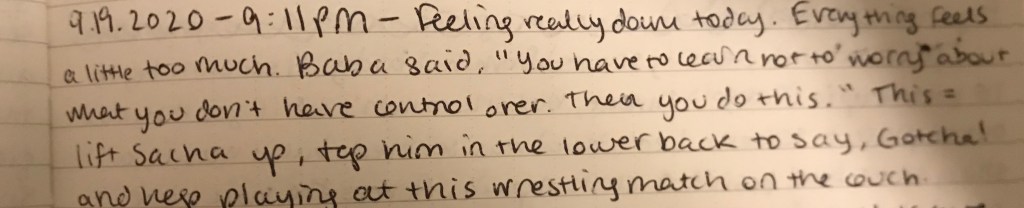 9.19.2020 - 9:11pm - Feeling really down today. Everything feels
a little too much. Baba said, "You have to learn not to 'worry' about
what you don't have control over. Then you do this." This =
lift Sacha up, tap him in the lower back to say, Gotcha!
and keep playing at this wrestling match on the couch.